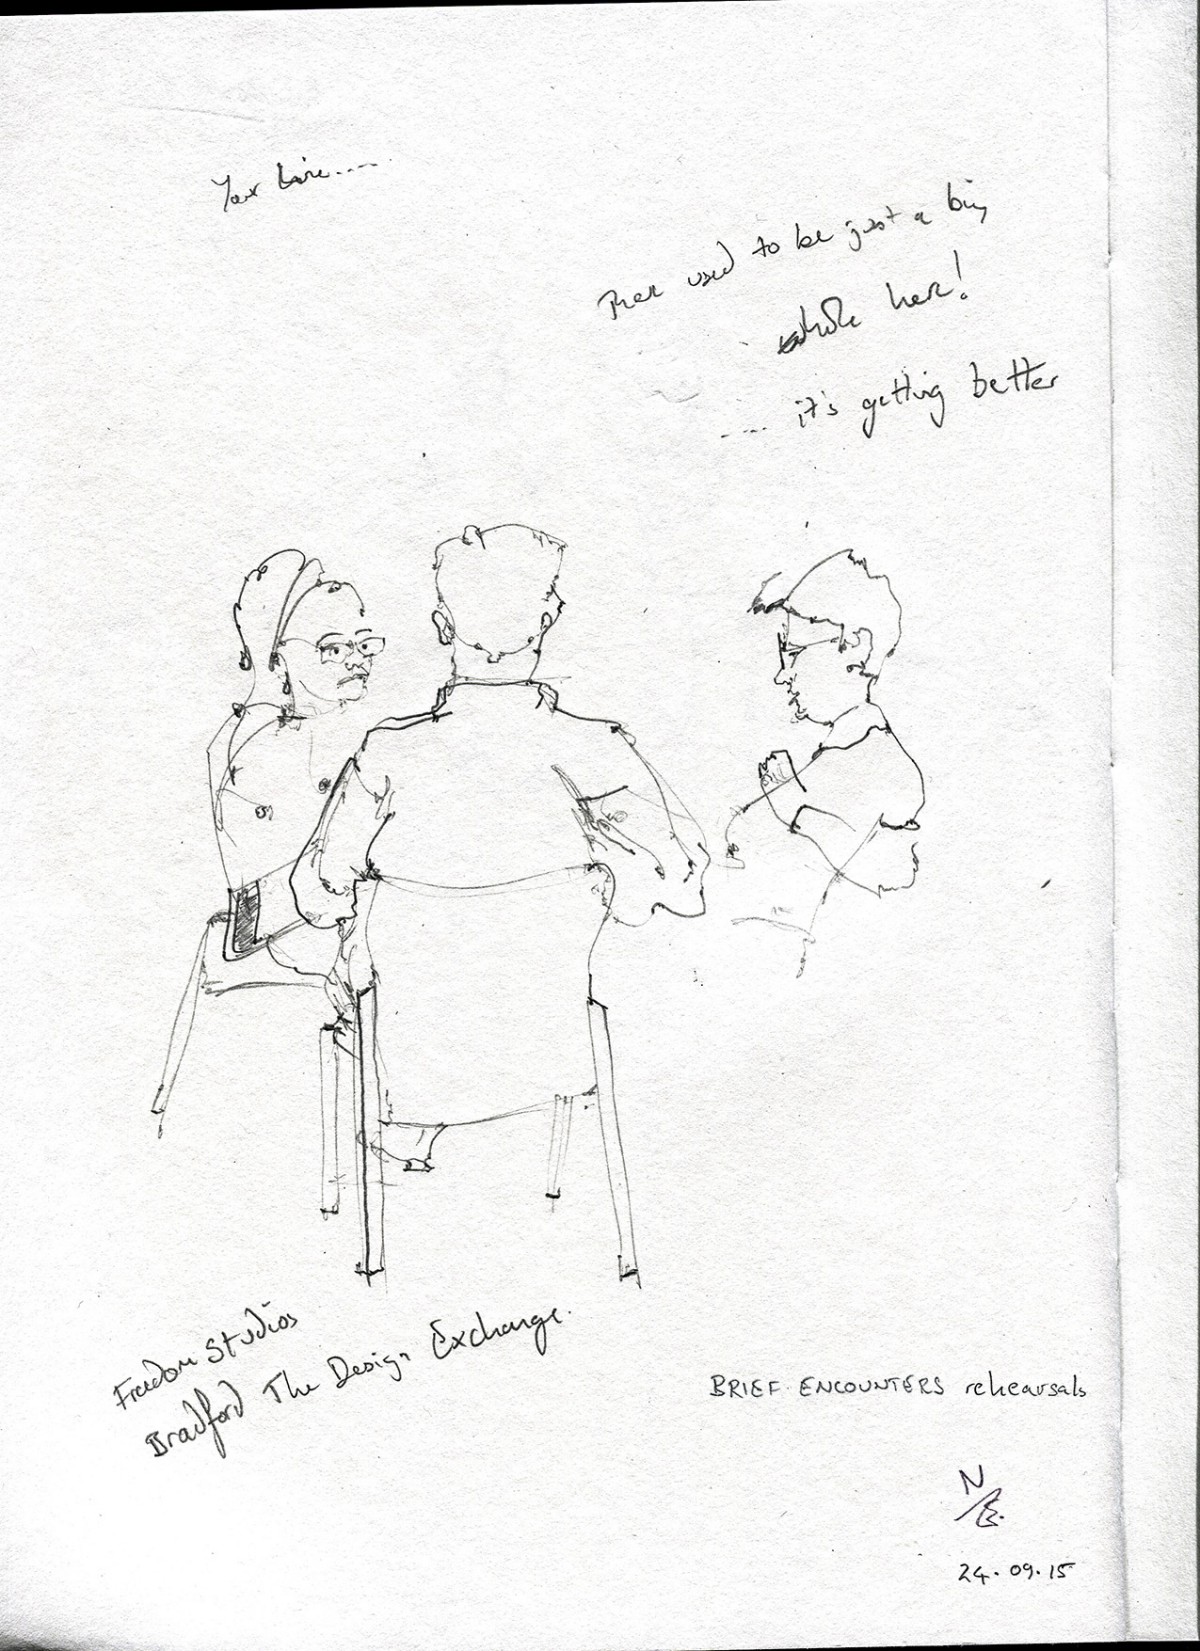 Your line....
There used to be just a big
hole here!
.... it's getting better
Freedom Studios
Bradford The Design Exchange.
BRIEF ENCOUNTERS rehearsals
N
24.09.15